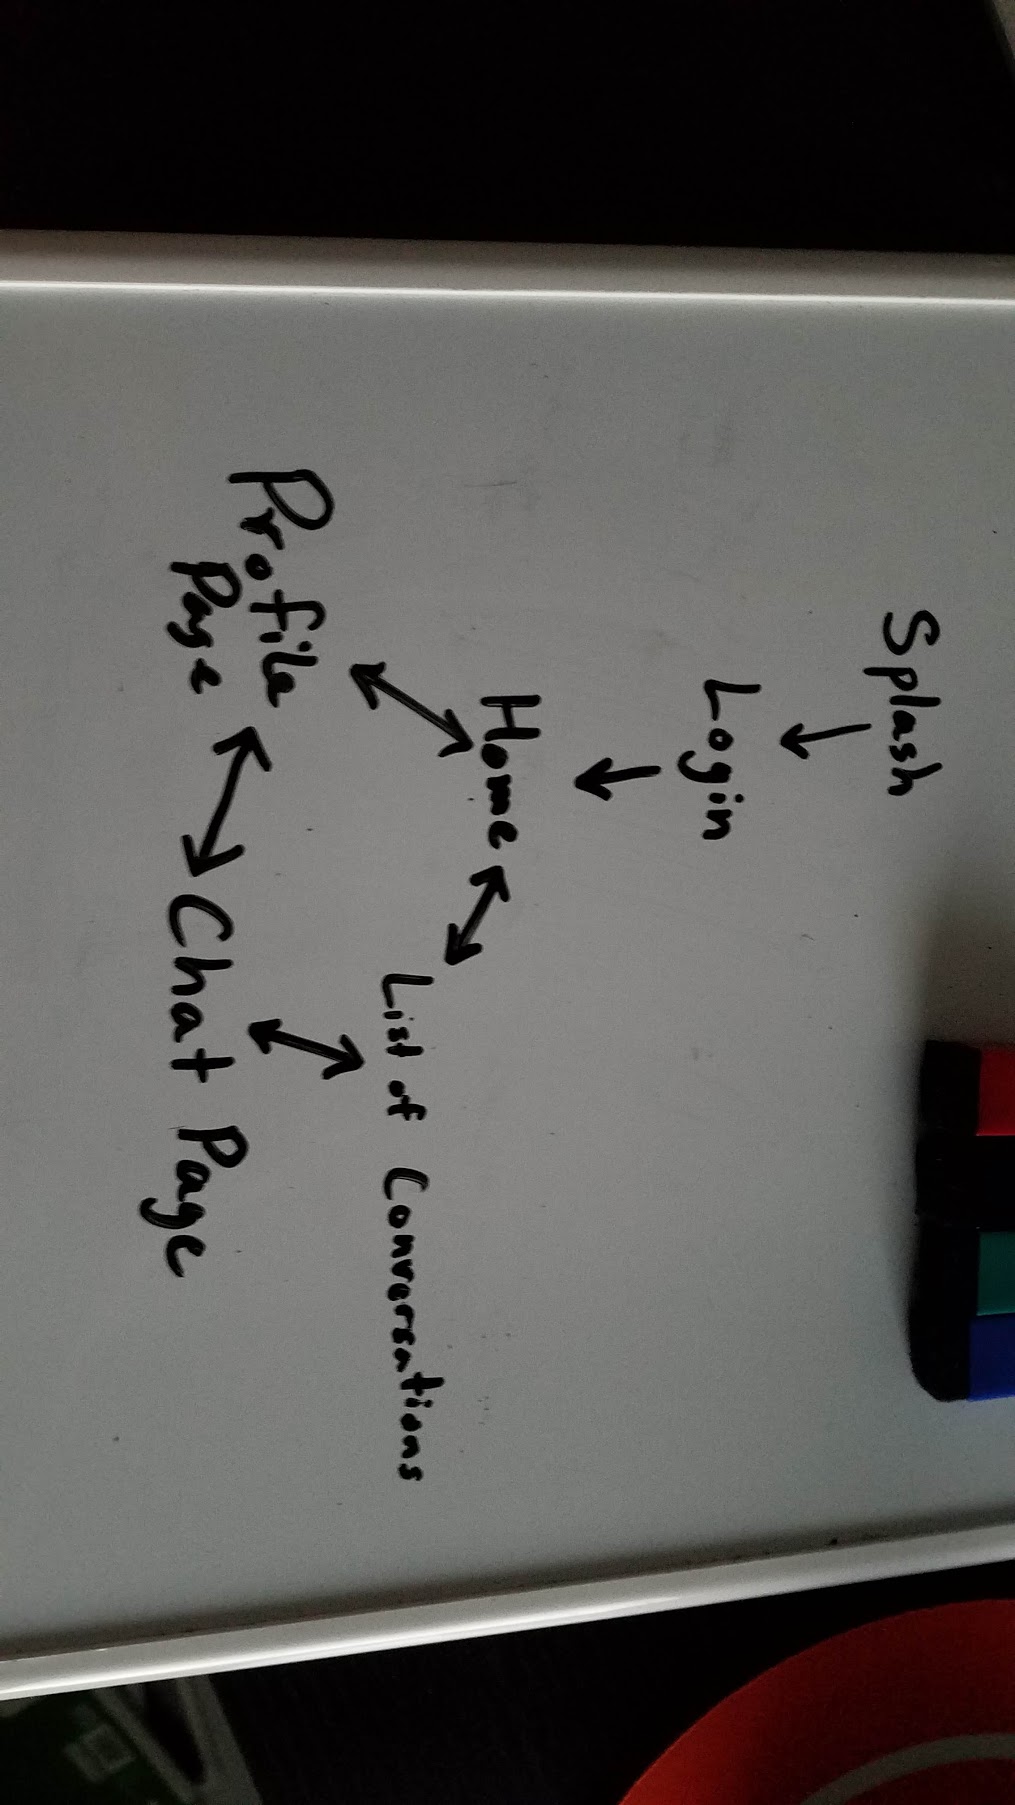 Splash
Login
Home
List of Conversations
Profile
Page
Chat Page